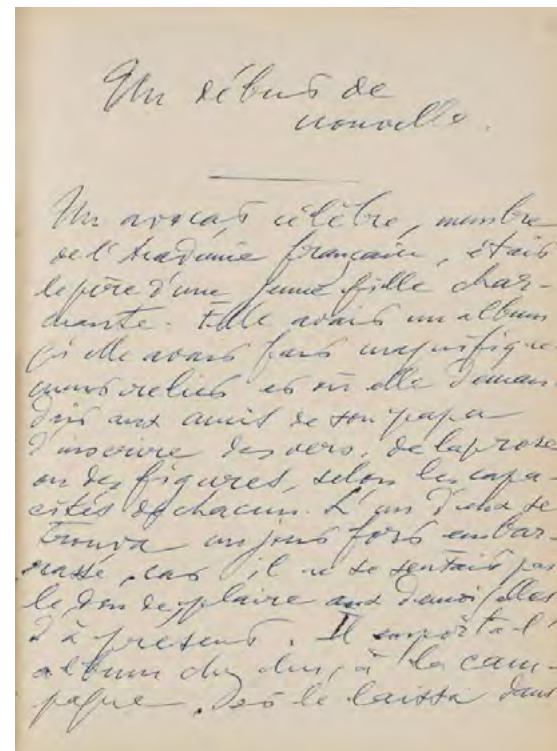 Un début de
nouvelle.
Un avocat célèbre, membre
de l'Académie française, était
le père d'une jeune fille char-
mante. Elle avait un album
qu'elle avait fait magnifique-
ment relier et où elle deman-
dait aux amis de son papa
d'inscrire des vers, de la prose
ou des figures, selon les capa-
cités de chacun. L'un d'eux se
trouva un jour fort embar-
rassé, car il ne se sentait pas
le don de plaire aux demoiselles
d'à présent. Il emporta l'
album chez lui, à la cam-
pagne, le laissa dans